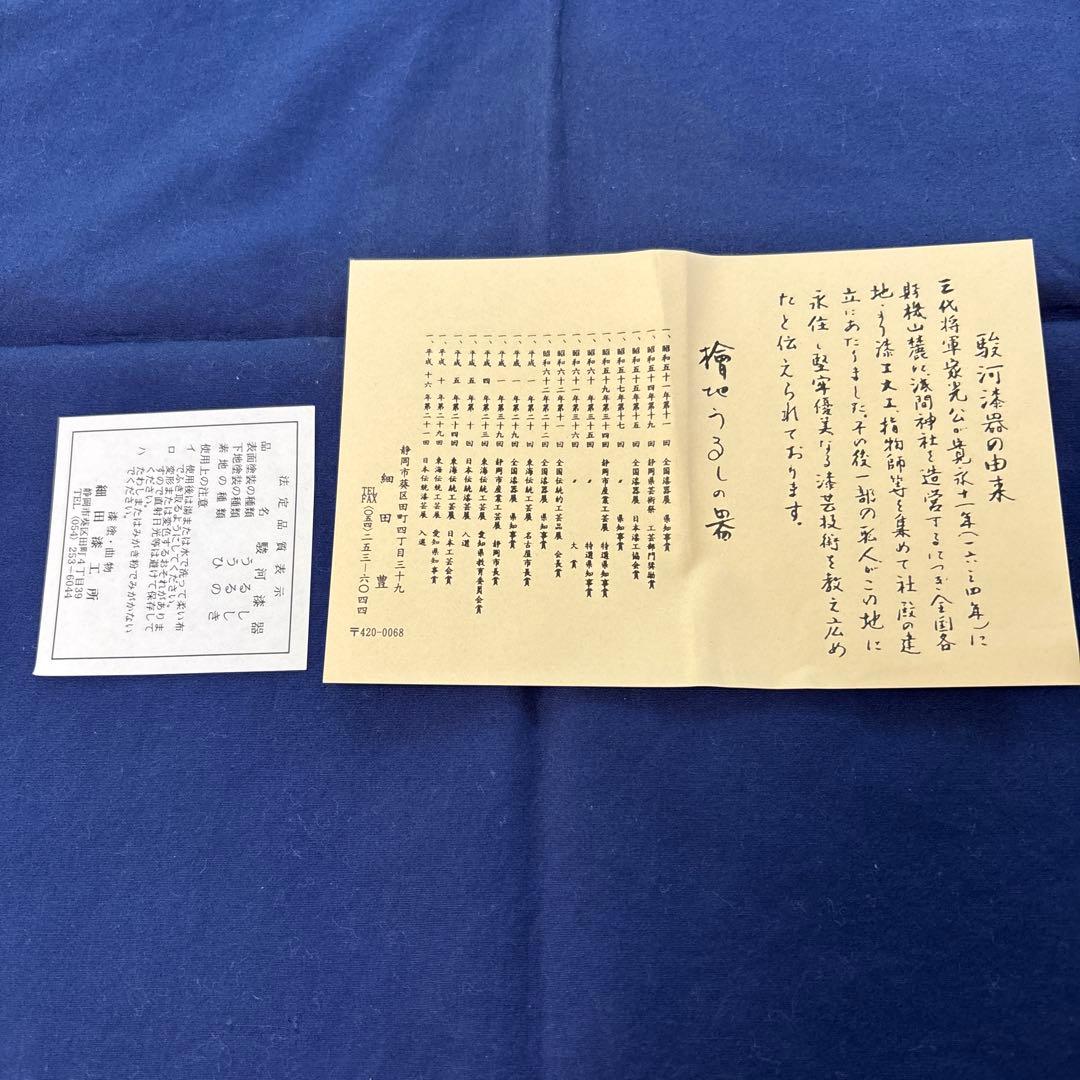 駿河漆器の由来
三代将軍家光公が寛永十一年(一六三四年)に
賎機山麓に浅間神社を造営するにつき全国各
地より漆工大工、指物師等を集めて社殿の建
立にあたりました。その後一部の職人がこの地に
永住し堅牢優美なる漆芸技術を教え広め
たと伝えられております。
檜地うるしの器
一、昭和五十一年第十一回 全国漆器展 県知事賞
一、昭和五十四年第十九回 静岡県芸術祭 工芸部門奨励賞
一、昭和五十五年第十五回 全国漆器展 日本漆工協会賞
一、昭和五十七年第 回 〃 県知事賞
一、昭和五十九年第三十四回 静岡市産業工芸展 特選県知事賞
一、昭和六十 年第三十五回 〃 特選県知事賞
一、昭和六十一年第三十六回 〃 大賞
一、昭和六十二年第十一 回 全国伝統的工芸品展 県知事賞
一、昭和六十二年第二十二回 全国漆器展 県知事賞
一、平成 一 年第二十 回 東海伝統工芸展 名古屋市長賞
一、平成 一 年第三十九回 静岡市産業工芸展 静岡市長賞
一、平成 四 年第二十三回 東海伝統工芸展 愛知県教育委員会賞
一、平成 五 年第二十四回 東海伝統工芸展 日本工芸会賞
一、平成 五 年第 十 回 日本伝統漆芸展 入選
一、平成 十 年第二十九回 東海伝統工芸展 愛知県知事賞
一、平成十六 年第二十一回 日本伝統漆芸展 入選
静岡市葵区田町四丁目三十九
細田 豊
TEL
FAX(〇五四)二五三-六〇四四
〒420-0068
法定品質表示
品名 駿河漆器
表面塗装の種類 うるし
下地塗装の種類 うるし
素地の種類 ひのき
使用上の注意
イ 使用後は湯または水で洗って柔い布
でふき取るようにしてください。
ロ 変形または変色するおそれがありま
すので直射日光等は避けて保存して
ください。
ハ たわしまたはみがき粉でみがかない
でください。
漆塗・曲物
細田漆工所
静岡市葵区田町4丁目39
TEL (054) 253-6044